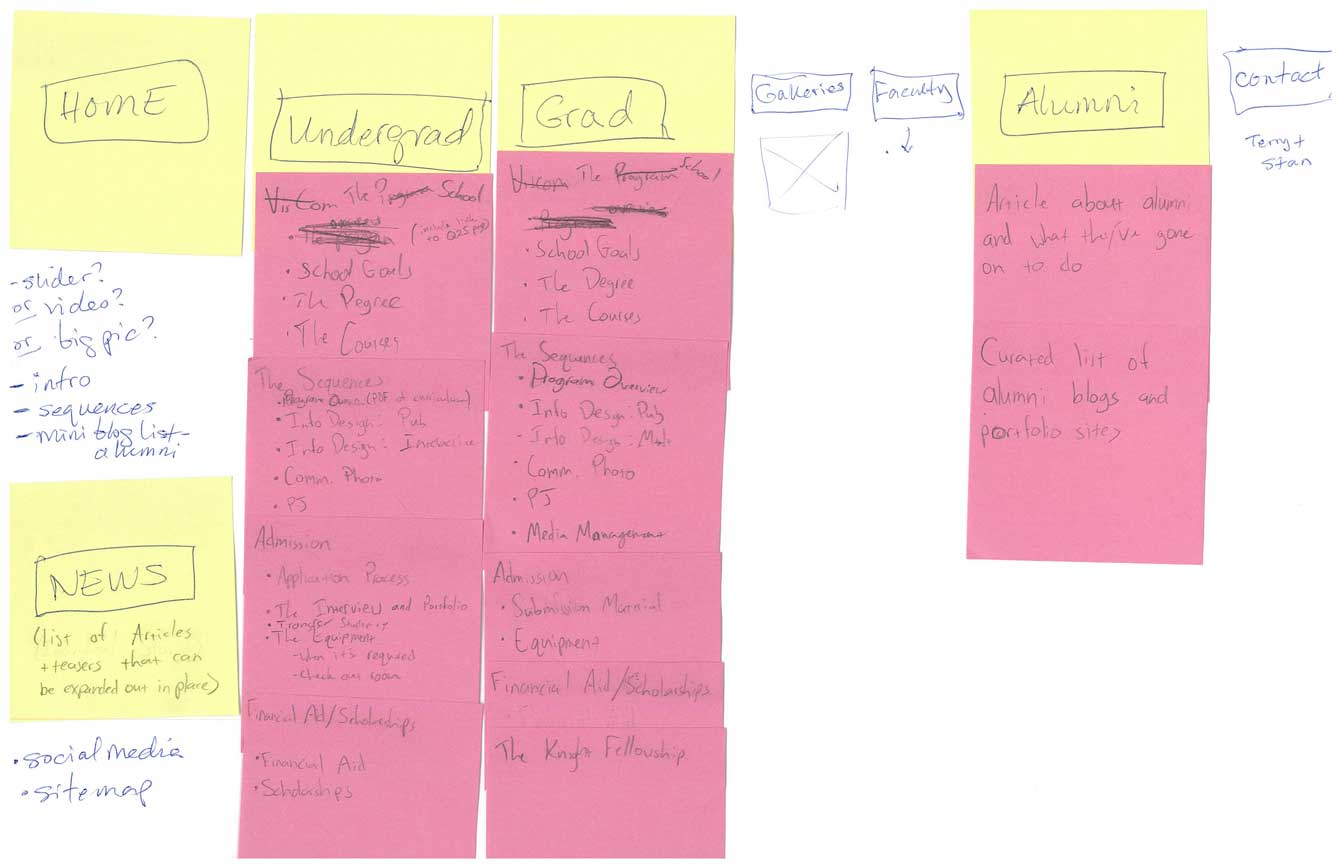 HOME
-slider?
or video?
or big pic?
- intro
- sequences
- mini blog list-
alumni
NEWS
(list of Articles
+ teasers that can
be expanded out in place)
• social media
• sitemap
Undergrad
VisCom The Program School
• The Program (include link
to Q25 pg)
• School Goals
• The Degree
• The Courses
The Sequences
• Program Overview (PDF of curriculum)
• Info Design: Pub
• Info Design: Interactive
• Comm. Photo
• PJ
Admission
• Application Process
• The Interview and Portfolio
• Transfer Students
• The Equipment
- When it's required
- Check out soon
Financial Aid/Scholarships
• Financial Aid
• Scholarships
Grad
Viscom The Program School
Program overview
• School Goals
• The Degree
• The Courses
The Sequences
• Program Overview
• Info Design: Pub
- Info Design: Mult
• Comm. Photo
• PJ
• Media Management
Admission
• Submission Material
• Equipment
Financial Aid/Scholarships
The Knight Fellowship
Galleries
Faculty
Alumni
Article about alumni
and what they've gone
on to do
Curated list of
alumni blogs and
portfolio sites
Contact
Terry +
Stan